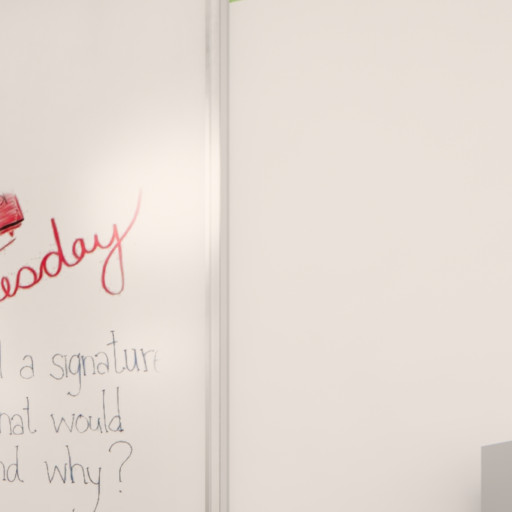 esday
a signatur
hat would
nd why?